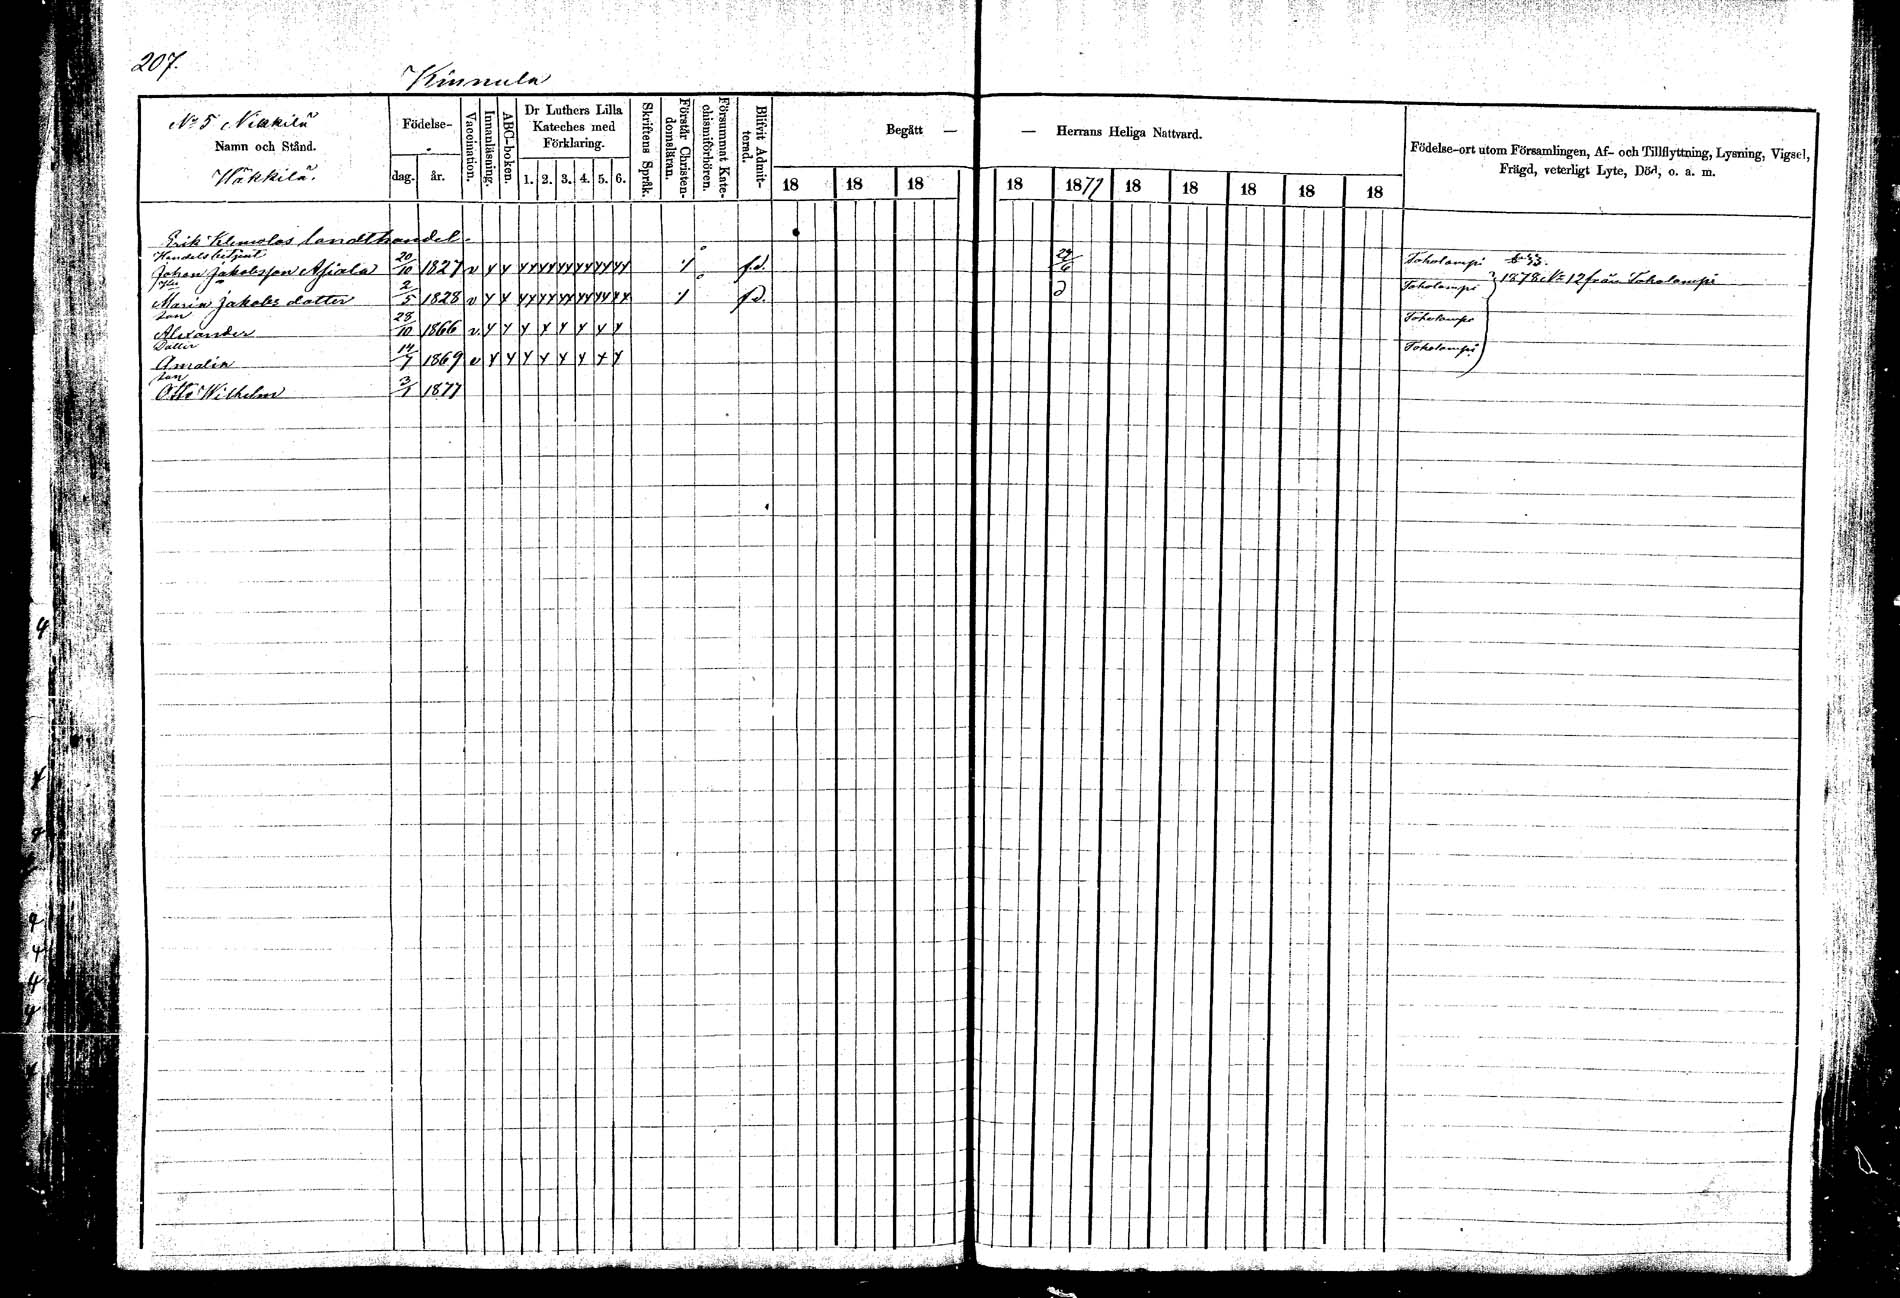 207.
Kinnula
No 5 Nikkilä
Namn och Stånd.
Häkkilä.
Födelse-
dag. år.
Vaccination.
Innanläsning.
ABC-boken.
Dr Luthers Lilla
Kateches med
Förklaring.
1. 2. 3. 4. 5. 6.
Skriftens Språk.
Förstår Christen-
domsläran.
Försummat Kate-
chismiförhören.
Blifvit Admit-
terad.
Begått —
— Herrans Heliga Nattvard.
18 18 18 18 1877 18 18 18 18 18
Födelse-ort utom Församlingen, Af- och Tillflyttning, Lysning, Vigsel,
Frägd, veterligt Lyte, Död, o. a. m.
Erik Klemolas landthandel.
Handelsbetjent
Johan Jakobsson Asiala 20/10 1827 v f.d. Toholampi
1878 No 12 från Toholampi
Maria Jakobs dotter 2/5 1828 v f.d. Toholampi
son
Alexander 28/10 1866 v. Toholampi
Dotter
Amalia 14/7 1869 v Toholampi
son
Otto Wilhelm 3/1 1877